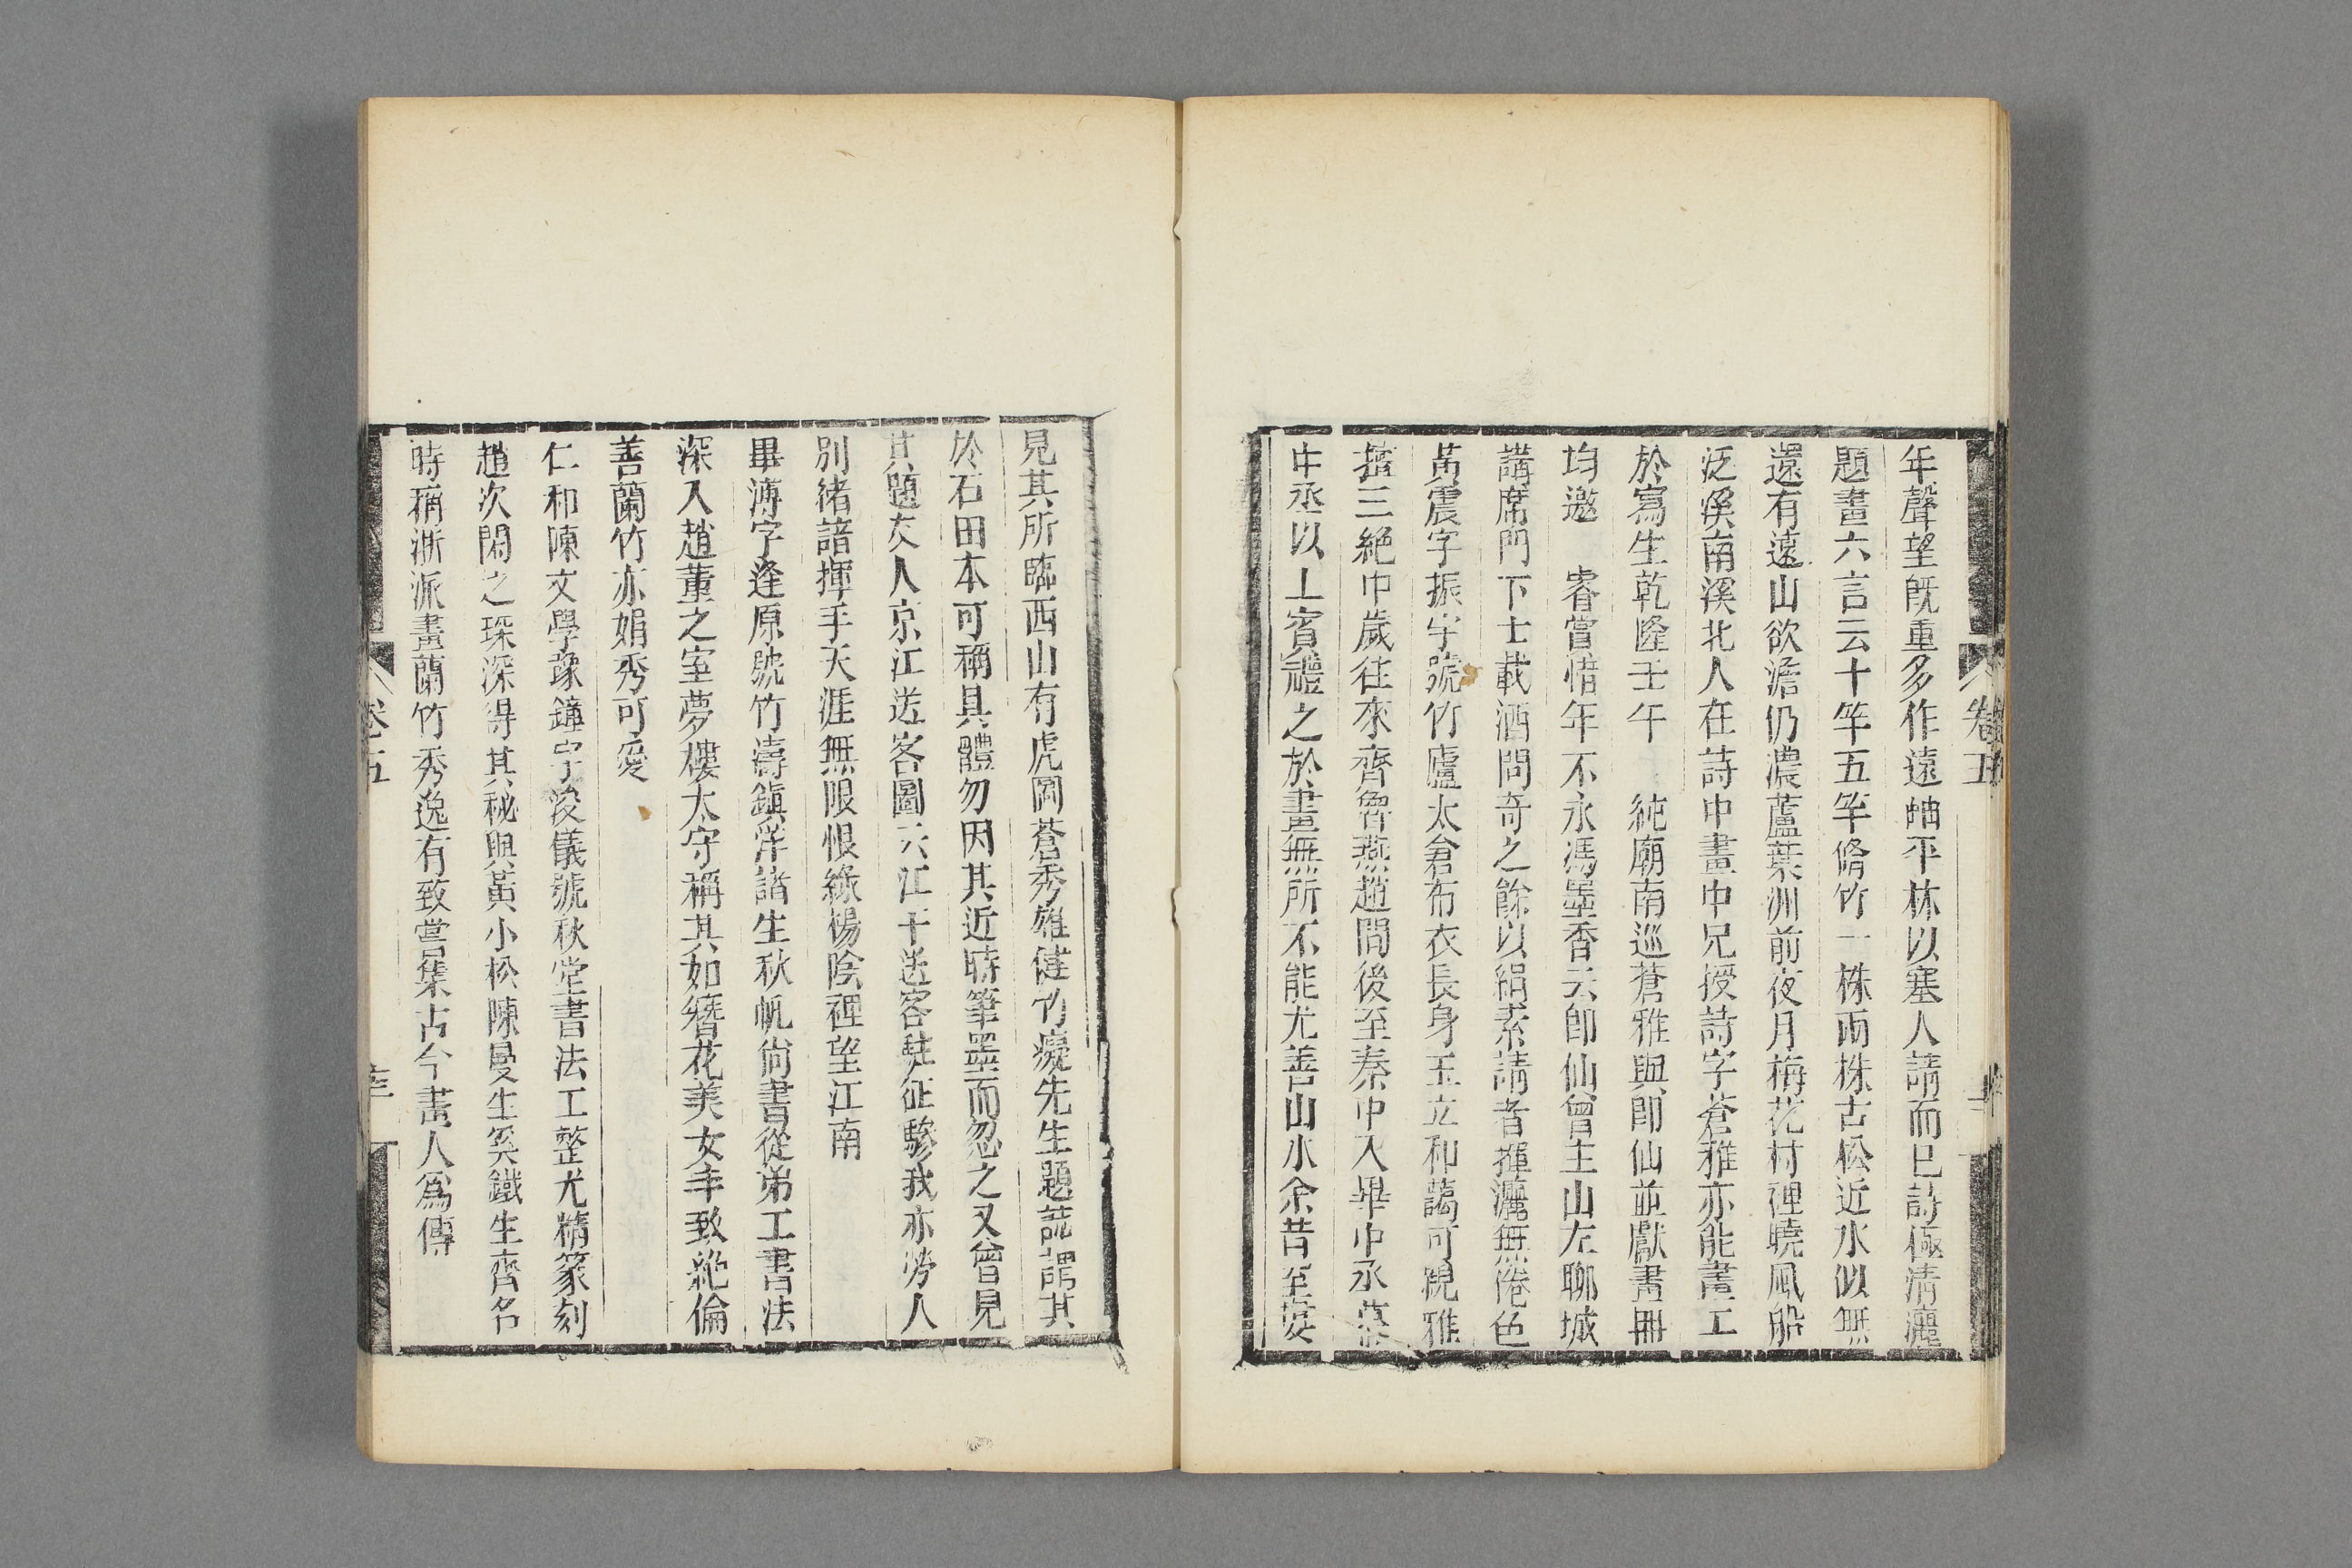 卷五
年聲望旣重多作遠岫平林以塞人請而已詩極淸灑
題畫六言云十竿五竿脩竹一株兩株古松近水似無
還有遠山欲澹仍濃蘆葉洲前夜月梅花村裡曉風船
泛溪南溪北人在詩中畫中兄授詩字蒼雅亦能畫工
於寫生乾隆壬午 純廟南巡蒼雅與卽仙並獻畫冊
均邀 睿嘗惜年不永馮墨香云卽仙曾主山左聊城
講席門下士載酒問奇之餘以絹素請者揮灑無倦色
黃震字振宇號竹廬太倉布衣長身玉立和藹可親雅
擅三絕中歲往來齊魯燕趙間後至秦中入畢中丞幕
中丞以上賓禮之於畫無所不能尤善山水余昔至婁
見其所臨西山有虎圖蒼秀雄健竹癡先生題識謂其
於石田本可稱具體勿因其近時筆墨而忽之又曾見
其題友人京江送客圖云江干送客駐征驂我亦勞人
別緒諳揮手天涯無限恨綠楊陰裡望江南
畢溥字逢原號竹濤鎭洋諸生秋帆尙書從弟工書法
深入趙董之室夢樓太守稱其如簪花美女丰致絕倫
善蘭竹亦娟秀可愛
仁和陳文學豫鐘字浚儀號秋堂書法工整尤精篆刻
趙次閑之琛深得其秘與黃小松陳曼生奚鐵生齊名
時稱浙派畫蘭竹秀逸有致嘗集古今畫人爲傳
卷五